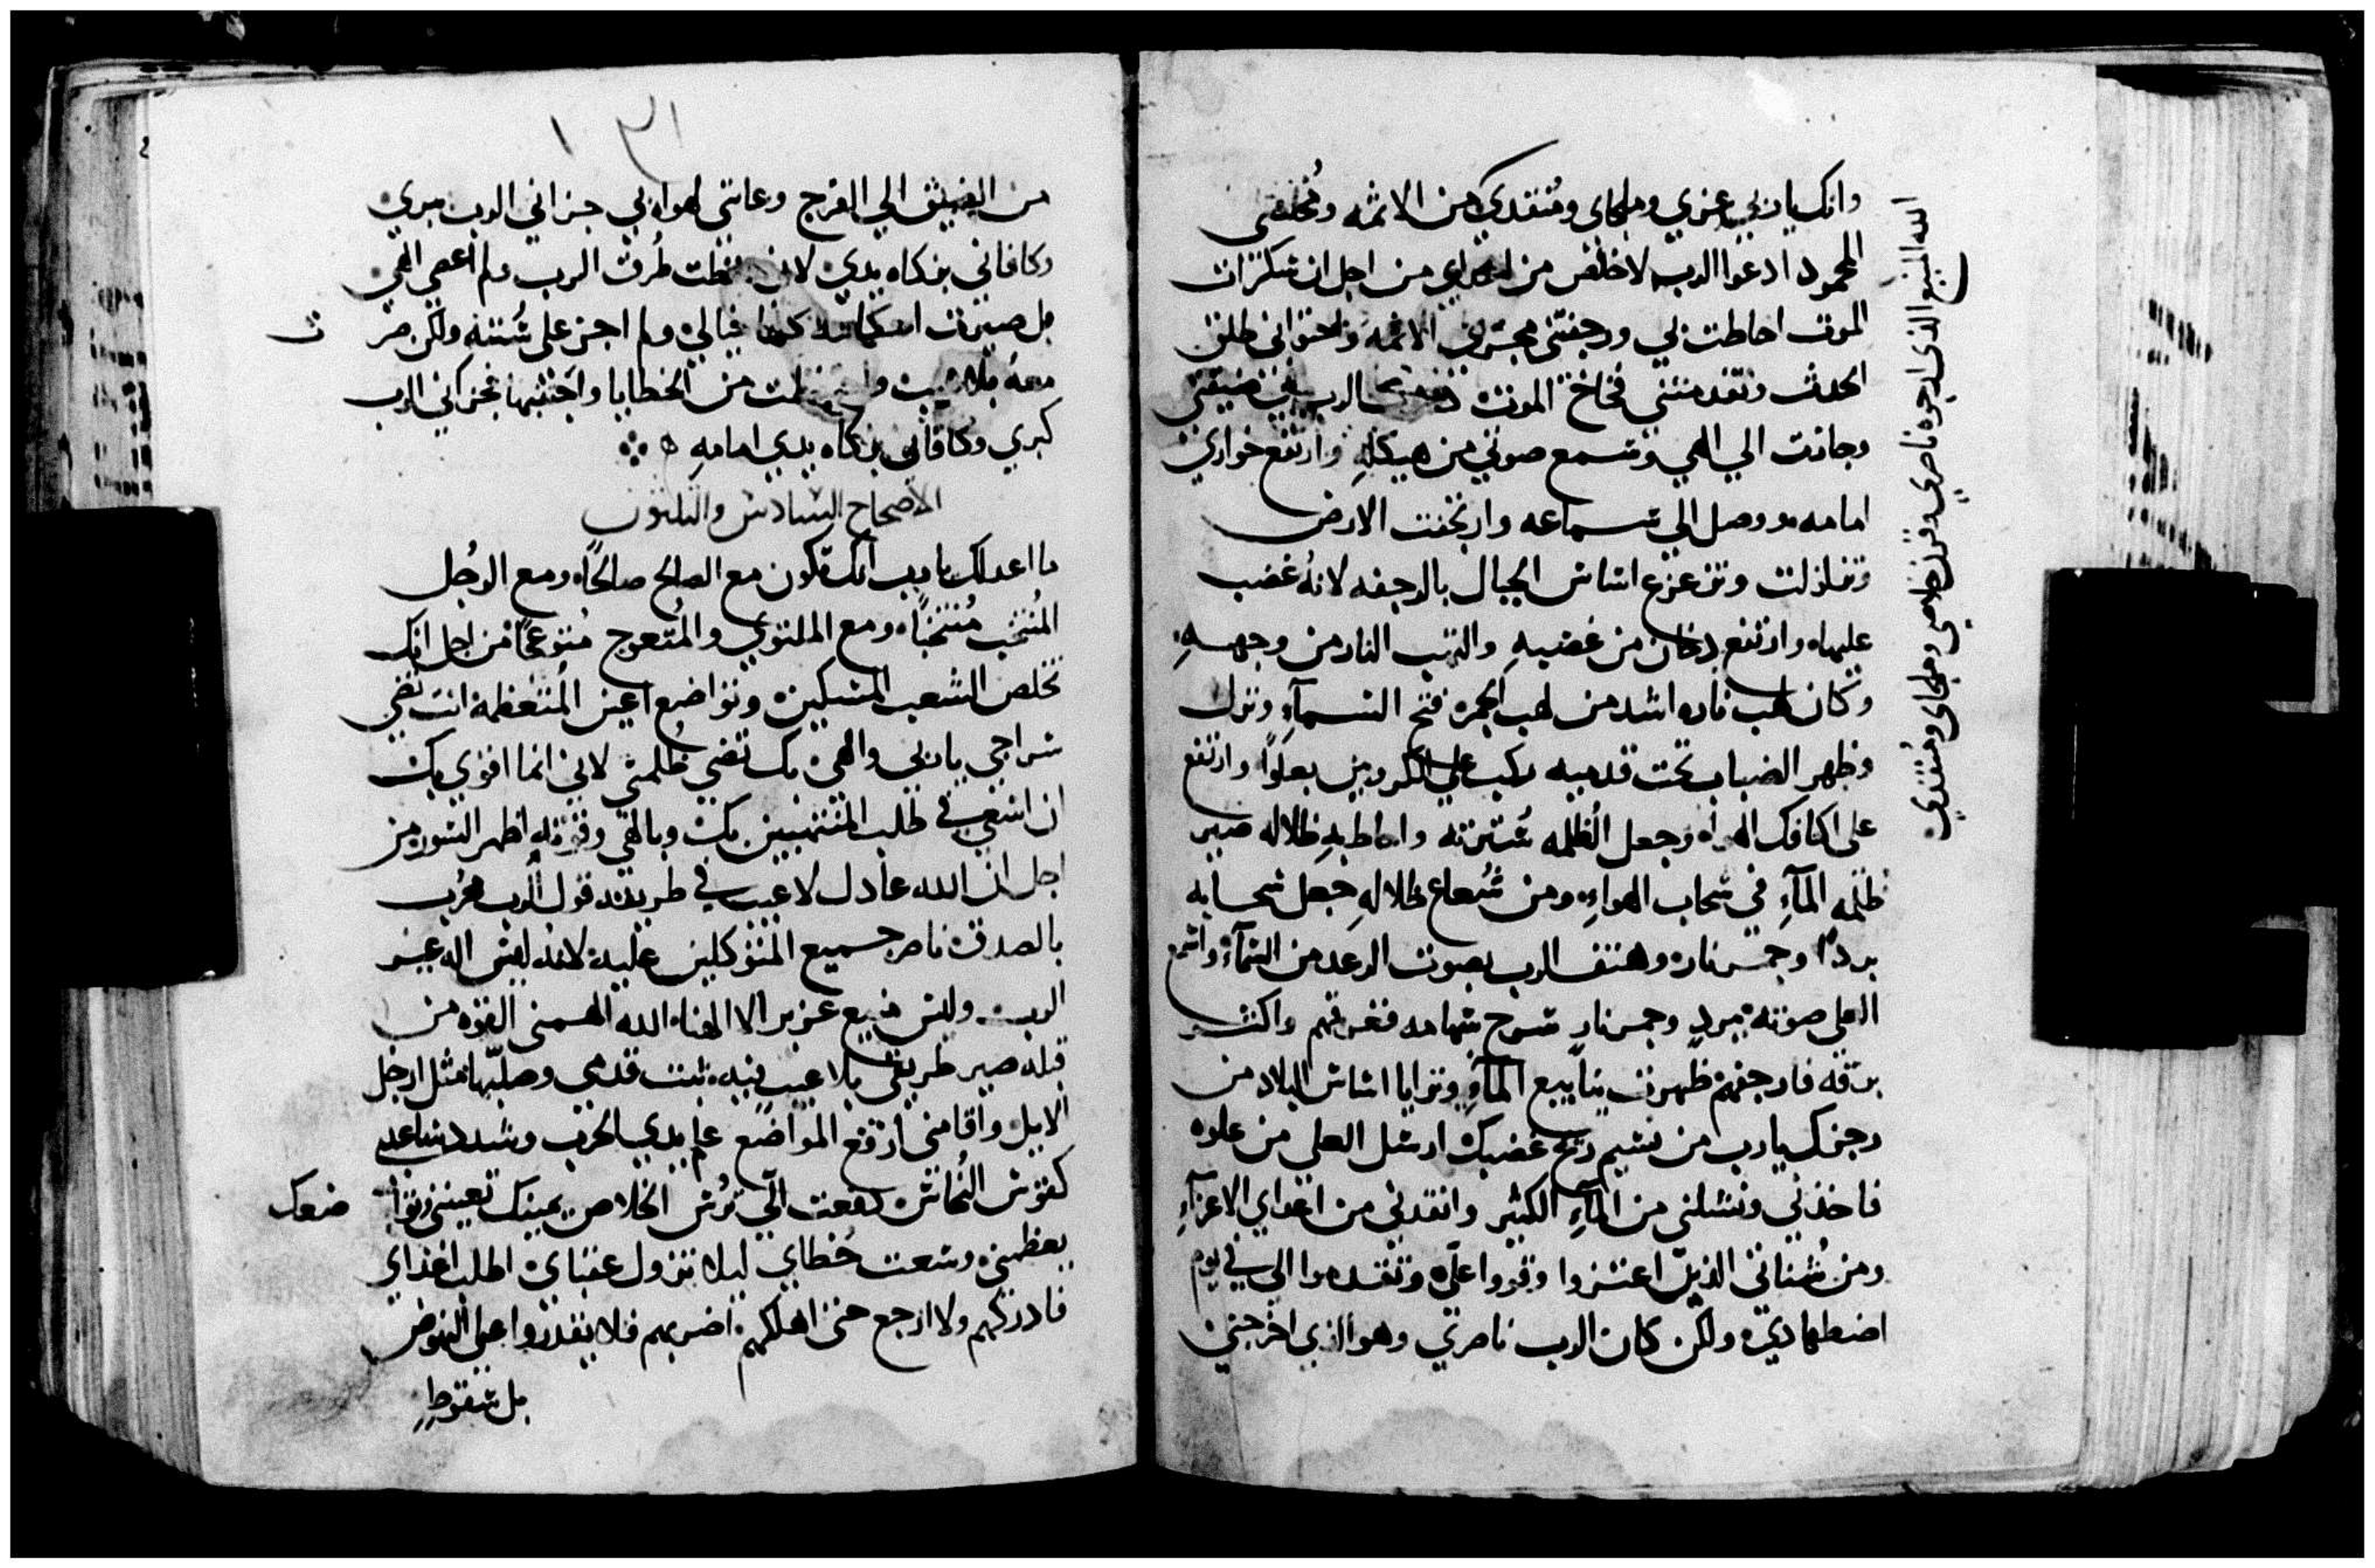 وانك يا ربي عزي وملجاي ومنقدي من الاثمه ومخلصي
المحمود ادعوا الرب لاخلص من اعداي من اجل ان سكرات
الموت احاطت بي ورجفتني الاثمه
الحدث وتقدمتني فخاخ الموت الرب في ضيقتي
وجانت الي الهي وسمع صوتي من هيكله وارتفع خواري
امامه ووصل الي سماعه وارتجفت الارض
وتزلزلت وتزعزع اساس الجبال بالرجفه لانه غضب
عليها وارتفع دخان من غضبه والتهب النار من وجهه
وكان لهب ناره اشد من لهب الجمره فتح السمآء ونزل
وظهر الضباب تحت قدميه ركب علي الكروبين بعلوا وارتفع
على اكتاف الهواه وجعل الظلمه سترته واحاط به ظلاله صير
ظلمه المآء في سحاب الهواء ومن شعاع ظلاله جعل سحابه
بردًا وجمر ناره وهتف الرب بصوت الرعد من السمآء واسمع
العلي صوته ببرد وجمر نار سرج سهامه ففرقهم واكثر
برقه فارجفهم ظهرت ينابيع المآء وترايا اساس البلاد من
رجزك يا رب من نسيم ريح غضبك ارسل العلي من علوه
فاخذني ونشلني من المآء الكثير وانقدني من اعداي الاعزآء
ومن شناتي الذين اعتزوا وقووا علي وتقدموا الي في يوم
اضطهادي ولكن كان الرب ناصري وهو الذي اخرجني
الله المنيع الذي ارجوه ناصري وقرن خلاصي وملجاي ومنقدي
١٣١
من الضيق الي الفرج جزاني الرب ببري
وكافاني بزكاه يدي لاني حفظت طرق الرب ولم اعصي الهي
بل صيرت احكامه كلها قبالي ولم اجز على سنته ولكن صر
ت
معه بلا عيب واحتفظت من الخطايا واجتنبها فجزاني الرب
كبري وكافاني بزكاه يدي امامه
الاصحاح السادس والثلثون
ما اعدلك يا رب انك تكون مع الصالح صالحًا ومع الرجل
المنتخب منتخبًا ومع الملتوي والمتعوج متوعجًا من اجل انك
تخلص الشعب المسكين وتواضع اعين المتعظمه انت تضي
سراجي يا ربي والهي بك تضي ظلمتي لاني انما اقوي بك
ان اسعي في طلب وبالهي وقوته اظهر السور من
اجل ان الله عادل لا عيب في طريقه قول الرب مجرب
بالصدق ناصر جميع المتوكلين عليه لانه ليس اله غير
الرب وليس منيع عزيز الا الهنا الله القوه من
قبله صير طريقي بلا عيب فيه ثبت قدمي وصلبها مثل ارجل
الايل واقامني ارفع المواضع علم يدي الحرب وشدد ساعدي
كقوس النحاس دفعت الي ترس الخلاص يمينك تعينني وتوا
ضعك
يعظمني وسعت خطاي ليلا تزول عقباي اطلب اعداي
فادركهم ولا ارجع حتى اهلكهم اضربهم فلا يقدروا على النهوض
بل سقوط